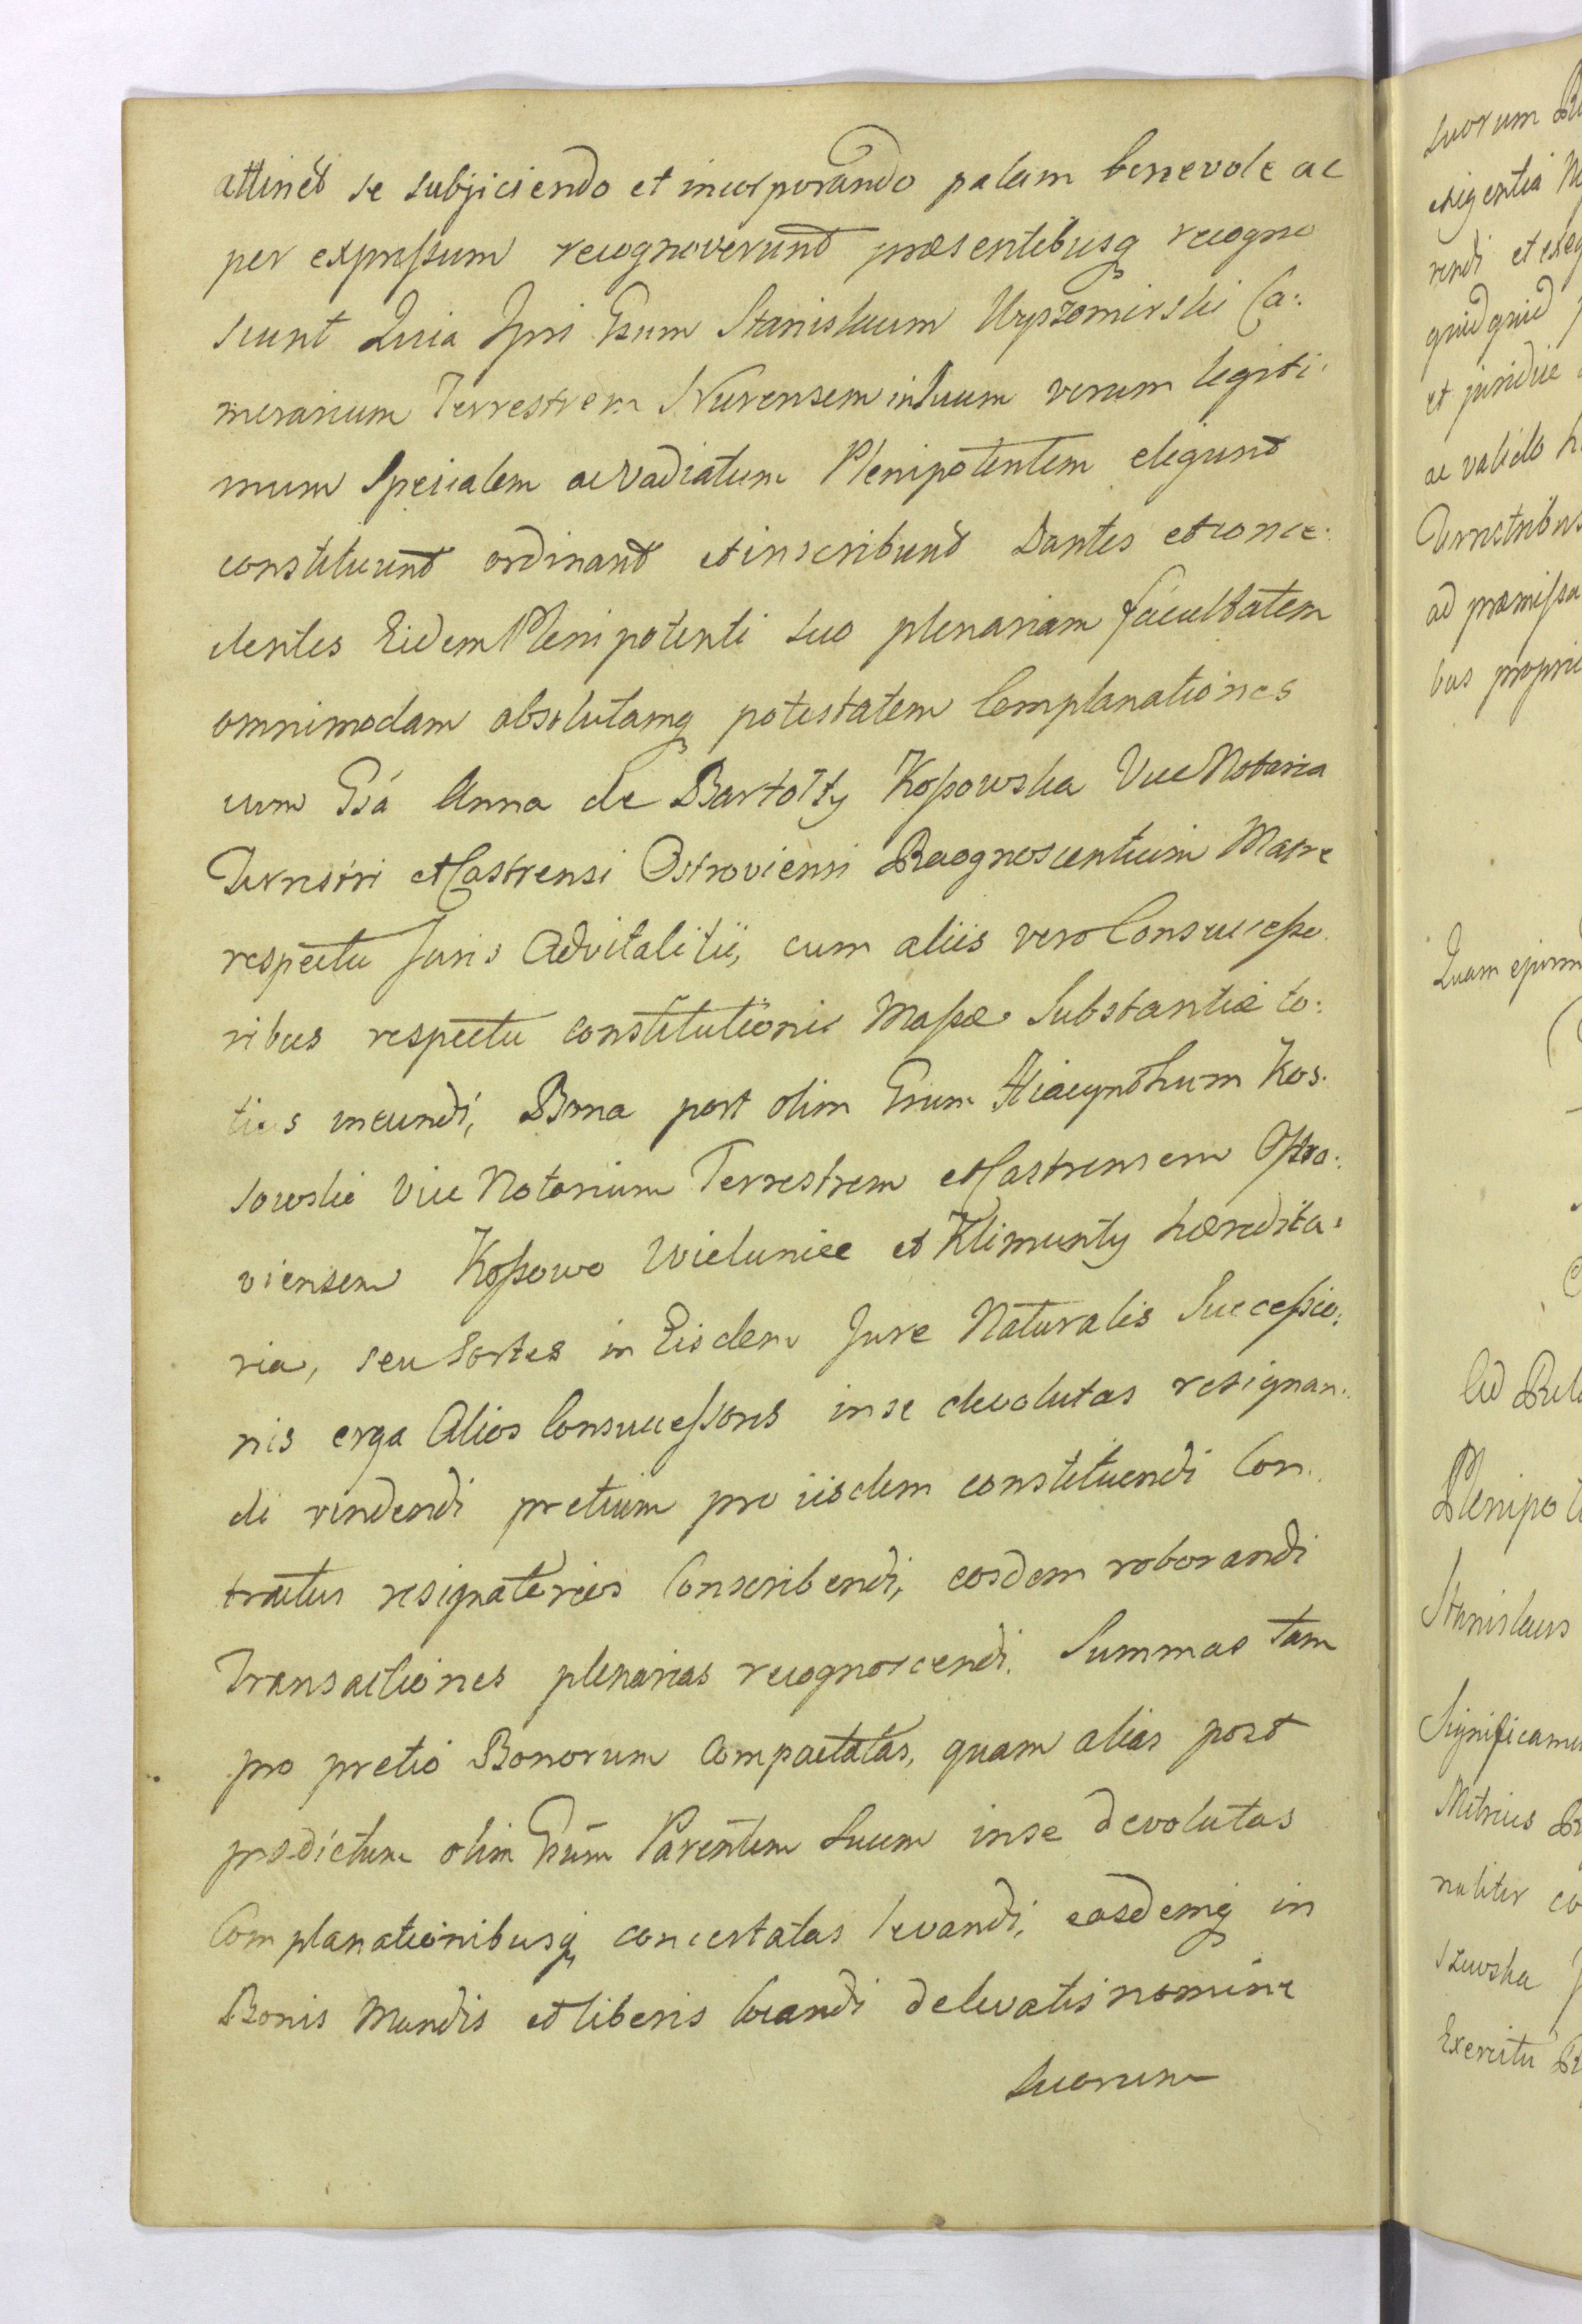 attinet se subjiciendo et incorporando palam benevole ac
per expressum recognoverunt præsentibusq recogno
scunt Quia Ipsi Gsum Stanislaum Wyszomirski Ca:
merarium Terrestrem Nurensem in Suum verum legiti:
mum Specialem ac Vadiatum Plenipotentem eligunt
constituunt ordinant et inscribunt Dantes et conce:
dentes Eidem Plenipotenti suo plenariam facultatem
omnimodam absolutamq potestatem Complanationes
cum Gsa Anna de Bartołty Kossowska Vice Notaria
Terrestri et Castrensi Ostroviensi Recognoscentium Matre
respectu Juris Advitalitii, cum aliis vero Consuccesso
ribus respectu constitutionis Massæ Substantiæ to:
tius ineundi, Bona post olim Gsum Hiacynthum Kos:
sowski Vice Notarium Terrestrem et Castrensem Ostro:
viensem Kossowo Wieluniec et Klimunty hæredita:
ria, seu Sortes in Eisdem Jure Naturalis Successio:
nis erga Alios Consuccessores in se devolutas resignan:
di vendendi pretium pro iisdem constituendi Con:
tractus resignatorios Conscribendi, eosdem roborandi
Transactiones plenarias recognoscendi. Summas tam
pro pretio Bonorum Compactatas, quam alias post
prædictum olim Gsum Parentem Suum in se devolutas
Complanationibusq concertatas levandi, easdemq in
Bonis Mundis et liberis locandi de levatis nomine
Suorum
suorum
rendi
quidquid
et juridice
ac valido
ad præmissa
Quam
Stanislaus
Exercitu